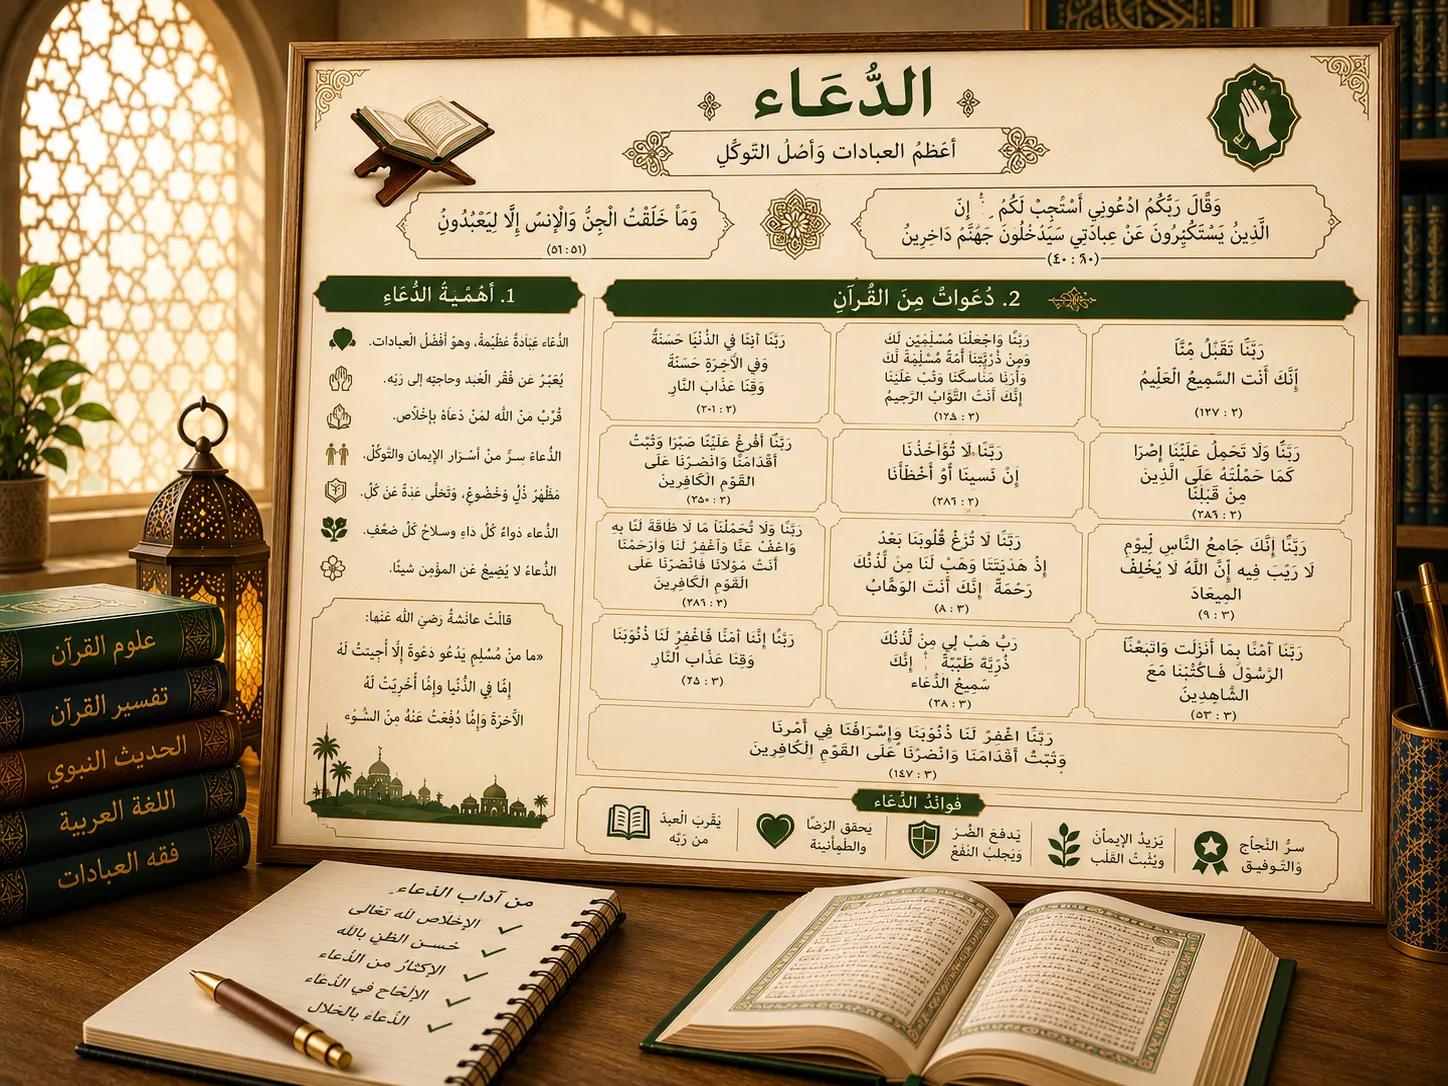 الدُّعَاء
أَعْظَمُ العبادات وَأَصْلُ التَّوكُّلِ
وَقَالَ رَبُّكُمُ ادْعُونِي أَسْتَجِبْ لَكُمْ إِنَّ
الَّذِينُ يَسْتَكْبِرُونَ عَنْ عِبادَتِي سَيَدْخُلُونَ جَهَنَّمَ دَاخِرِينُ
(٤٠ : ٦٠)
وَمَا خَلَقْتُ الْجِنُّ وَالْإِنسَ إِلَّا لِيَعْبُدُونُ
(٥١ : ٥١)
1. أَهَمِّيَةُ الدُّعَاءِ
الدُّعَاء عِبَادَةُ عَظِيْمَةُ، وهوَ أَفْضَلُ العبادات.
يُعَبّرُ عَن فَقْر العَبْد وحاجتِه إلى رَبِّه.
قُرْبُ مَنْ الله لمَنْ دَعاهُ بإِخْلَاص.
الدُّعاءُ سِرٌّ منْ أَسْرَار الإيمان والتَّوكُّلْ.
مَظْهَرُ ذُلْ وَخُضُوعْ، وَتَخلّى عَدةْ عَنْ كُلْ.
الدُّعاء دَواءُ كُلْ داءِ وسلاحُ كلْ ضعْفِ.
الدُّعاءُ لا يُضِيعُ عَن المؤمِن شيئًا.
قالتْ عائشةُ رضيَ الله عَنْها:
«ما منْ مُسْلِمٍ يَدْعُو دَعْوةً إلَّا أُجيبتْ لَهُ
إِمَّا في الدُّنْيا وإمَّا أُخْرِيَتْ لَهُ
الآخرَةَ وَإِمَّا دُفِعَتْ عَنْهُ مِنَ السُّوء»
2. دُعَواتْ مِنَ القُرآنِ
رَبَّنَا تَقَبَّلْ مِنَّا
إِنَّكَ أَنْت السَّمِيعُ الْعَلِيمُ
(٢ : ١٢٧)
رَبَّنَا وَاجْعَلْنَا مُسْلِمَيْنِ لَكَ
وَمِنْ ذُرِّيَّتِنَا أُمَّةً مُسْلِمَةً لَّكَ
وَأَرِنَا مَنَاسكَنَا وَتُبْ عَلَيْنَا
إِنَّكَ أَنتُ التَّوَّابُ الرَّحِيمُ
(٢ : ١٢٥)
رَبَّنَا آتِنَا فِي الدُّنْيَا حَسَنَةً
وَفِي الْآخِرَةِ حَسَنَةً
وَقِنَا عَذَابَ النَّارِ.
(٢ : ٢٠١)
رَبَّنَا وَلَا تَحَمِلْ عَلَيْنَا إِصْرًا
كَمَا حَمَلْتَهُ عَلَى الَّذِينَ
مِنْ قَبْلِنَا
(٢ : ٢٨٦)
رَبَّنَا لَا تُؤَاخِذْنَا
إِنْ نَسينَا أَوْ أَخْطَأْنَا
(٢ : ٢٨٦)
رَبَّنَا أَفْرِغْ عَلَيْنَا صَبْرًا وَثَبِّتْ
أَقْدَامَنَا وَانْصُرْنَا عَلَى
القَوْمِ الْكَافِرِينَ
(٢ : ٢٥٠)
رَبَّنَا إِنَّكَ جَامِعُ النَّاسِ لِيَوْمِ
لَا رَيْبَ فِيه إِنَّ اللَّهَ لَا يُخْلِفُ
المِيعَادَ
(٣ : ٩)
رَبَّنَا لَا تُزِغْ قُلُوبَنَا بَعْدَ
إِذْ هَدَيْتَنَا وَهَبْ لَنَا مِنْ لَّدُنْكَ
رَحْمَةً إِنَّكَ أَنْتَ الوَهَّابُ
(٣ : ٨)
رَبَّنَا وَلَا تُحَمِّلْنَا مَا لَا طَاقَةَ لَنَا بِهِ
وَاعْفُ عَنَّا وَاغْفِرْ لَنَا وَارْحَمْنَا
أَنتُ مَوْلَانَا فَانْصُرْنَا عَلَى
القَوْمِ الْكَافِرِينَ
(٢ : ٢٨٦)
رَبَّنَا آمَنَّا بِمَا أَنْزَلْت وَاتَبَعْنَا
الرَّسُوْلَ فَاكْتُبْنَا مَعَ
الشَّاهِدِينَ
(٣ : ٥٣)
رَبُّ هَبْ لِي مِنْ لَّدُنْكَ
ذُرِيَّةً طَيِّبَةً إِنَّكَ
سَمِيعُ الدُّعَاء
(٣ : ٣٨)
رَبَّنَا إِنَّنَا آمَنَّا فَاغْفِرْ لَنَا ذُنُوبَنَا
وَقِنَا عَذَابَ النَّارِ.
(٣ : ٢٥)
رَبَّنَا اغْفِرْ لَنَا ذُنُوبَنَا وَإِسْرَافَنَا فِي أَمْرِنَا
وَثَبِّتْ أَقْدَامَنَا وَانْصُرْنَا عَلَى القَوْمِ الْكَافِرِينَ
(٣ : ١٤٧)
فوائدُ الدُّعَاء
سرُّ النَّجاح
وَالتَّوفيق
يَزيدُ الإيمانْ
ويُثبتُ القَلْب
يَدفعُ الضُّرَ
وَيَجلبُ النَّفْعْ
يَحققُ الرّضَا
والطمأنينة
يَقْربُ العبدُ
من رَبِّه
علوم القرآن
تفسير القرآن
الحديث النبوي
اللغة العربية
فقه العبادات
من آداب الدعاء
الإخلاص لله تعَالى
حُسن الظن بالله
الإكثارُ من الدُّعاء
الإلْحاح في الدُّعاء
الدُّعاءُ بالحَلال